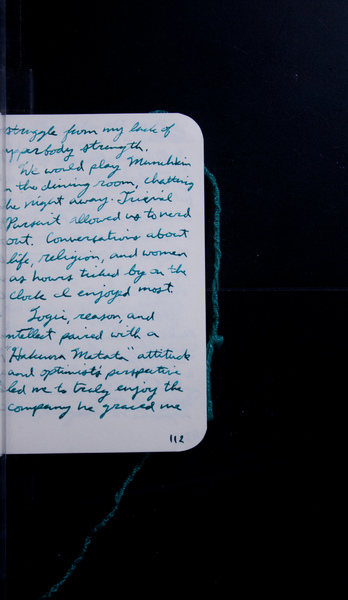 struggle from my lack of
upperbody strength.
We would play Munchkin
n the dining room, chatting
he night away. Trivial
Pursuit allowed us to nerd
out. Conversations about
life, religion, and women
as hours ticked by on the
clock I enjoyed most.
Logic, reason, and
ntellect paired with a
"Hakuna Matata" attitude
and optimist's perspective
led me to truly enjoy the
company he graced me
112